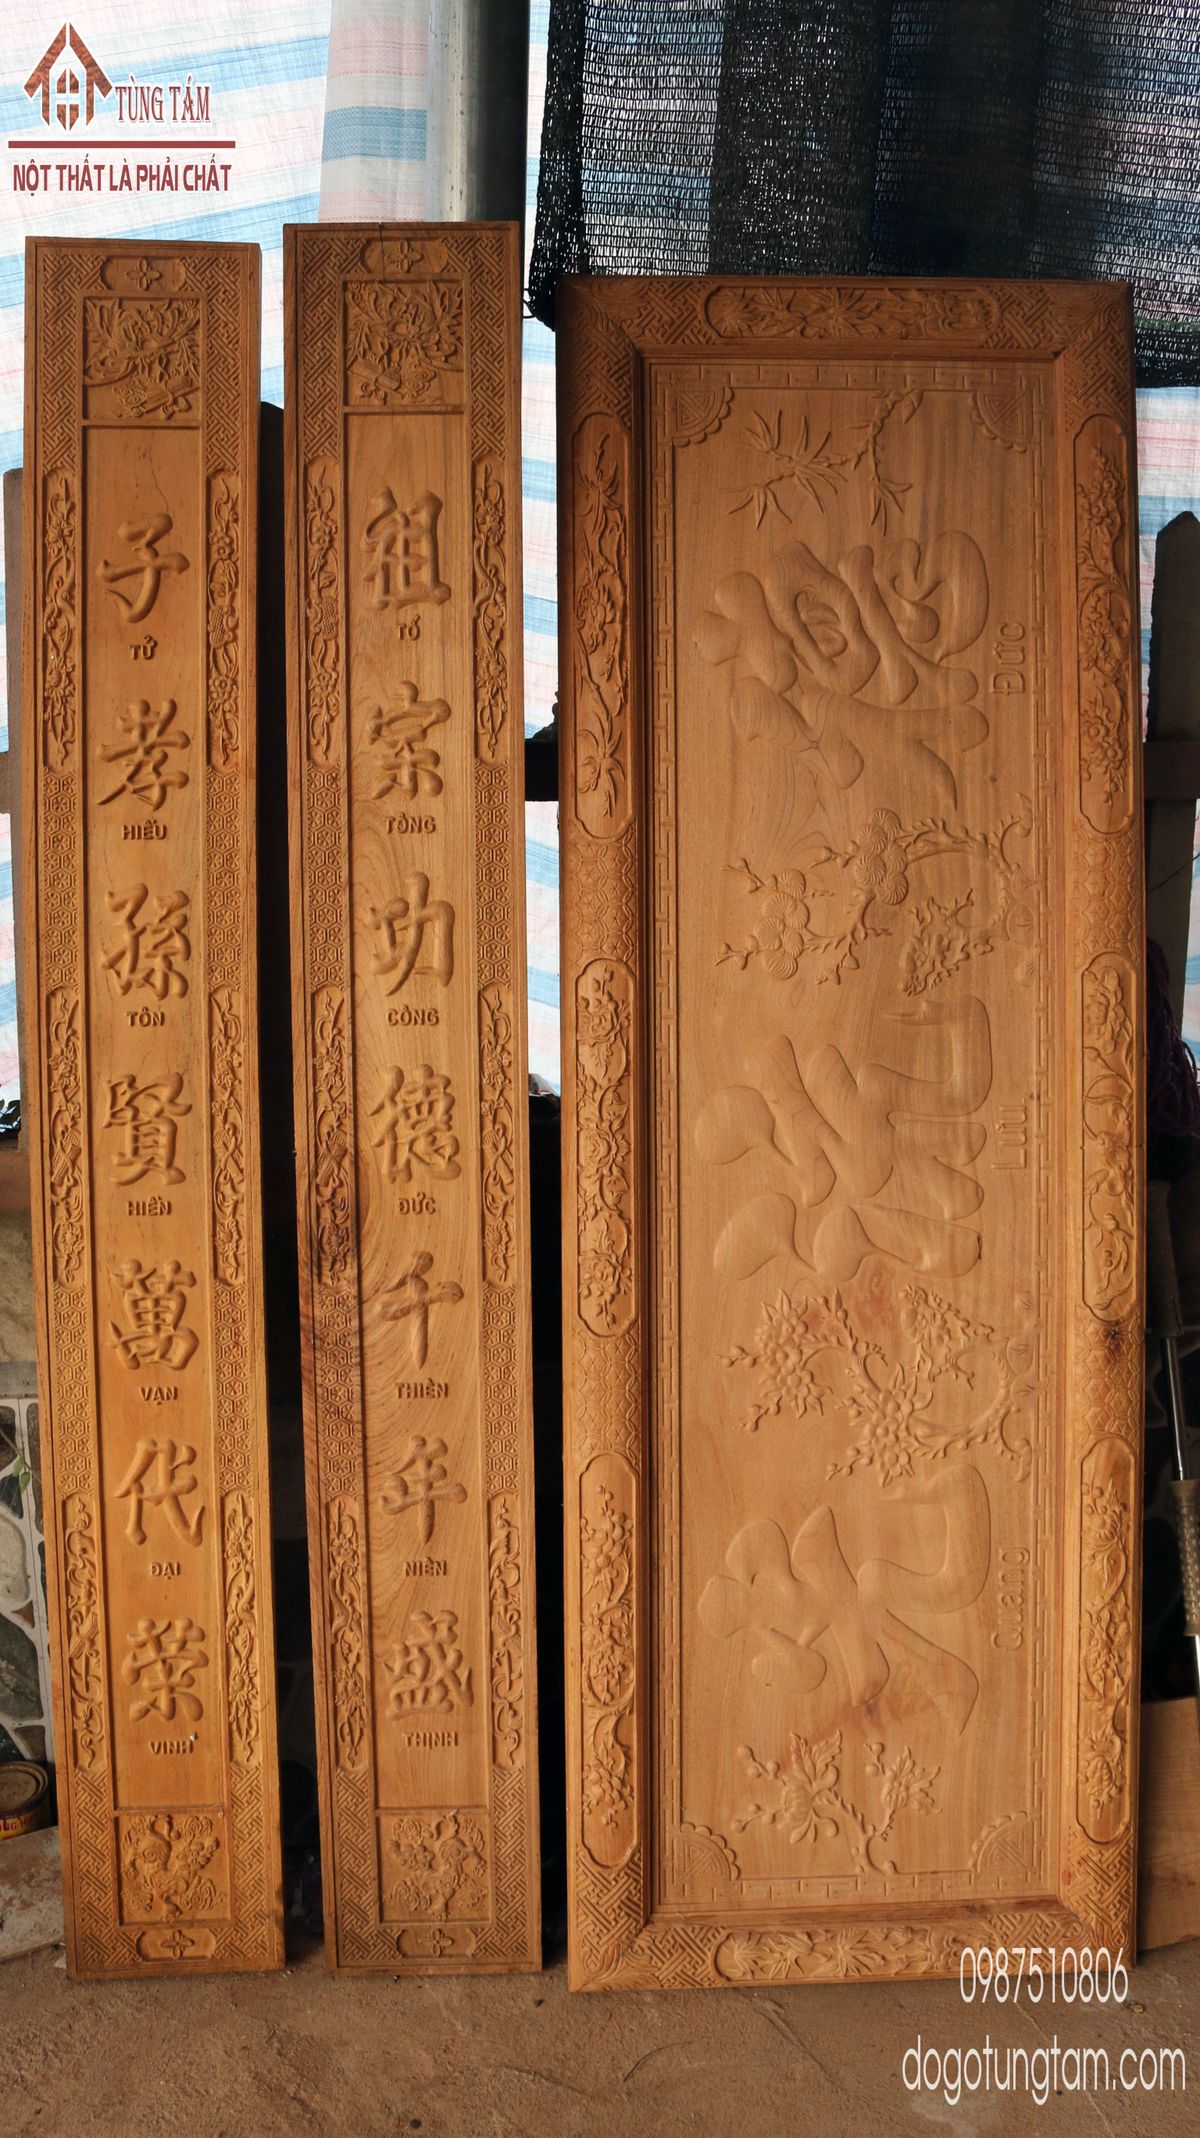 TÙNG TẮM
NỘT THẤT LÀ PHẢI CHẤT
子
TỬ
孝
HIẾU
孫
TÔN
賢
HIỀN
萬
VẠN
代
ĐẠI
荣
VINH
祖
TỔ
宗
TÔNG
功
CÔNG
德
ĐỨC
千
THIÊN
年
NIÊN
盛
THỊNH
德
Đức
流
Lưu
光
Quang
0987510806
dogotungtam.com